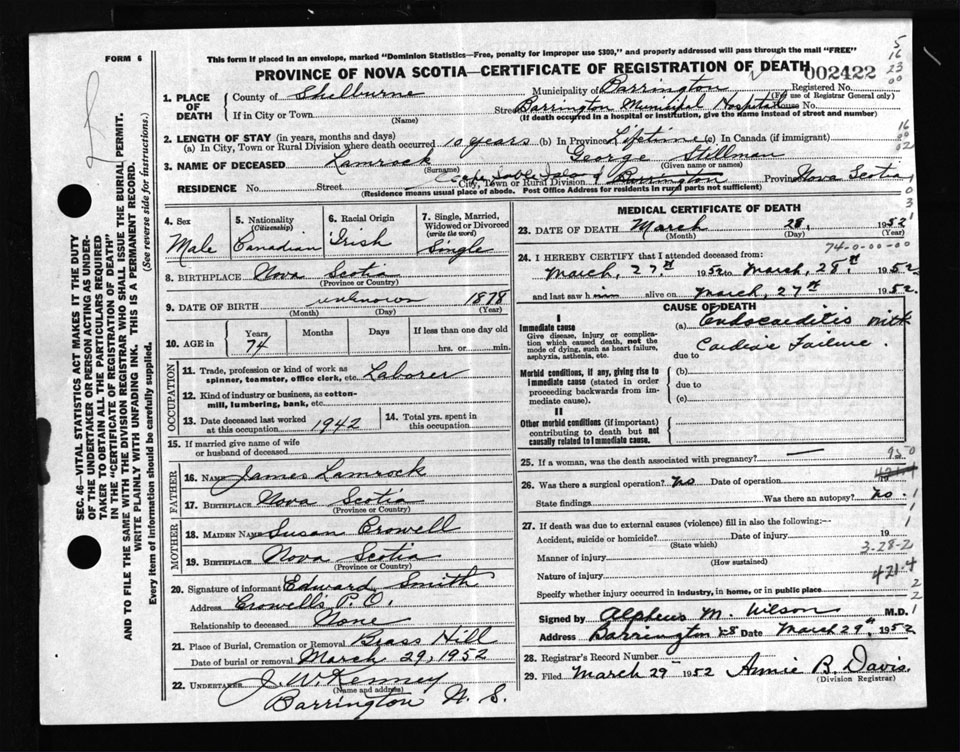 FORM 6
This form if placed in an envelope, marked "Dominion Statistics—Free, penalty for improper use $300," and properly addressed will pass through the mail "FREE"
PROVINCE OF NOVA SCOTIA—CERTIFICATE OF REGISTRATION OF DEATH
002422
5
16
23
00
SEC. 46—VITAL STATISTICS ACT MAKES IT THE DUTY
OF THE UNDERTAKER OR PERSON ACTING AS UNDER-
TAKER TO OBTAIN ALL THE PARTICULARS REQUIRED
IN THE "CERTIFICATE OF REGISTRATION OF DEATH"
AND TO FILE THE SAME WITH THE DIVISION REGISTRAR WHO SHALL ISSUE THE BURIAL PERMIT.
WRITE PLAINLY WITH UNFADING INK. THIS IS A PERMANENT RECORD.
Every item of information should be carefully supplied. (See reverse side for instructions.)
1. PLACE OF DEATH
County of Shelburne Municipality of Barrington Registered No.
(For use of Registrar General only)
If in City or Town (Name) Street Barrington Municipal Hospital House No.
(If death occurred in a hospital or institution, give the name instead of street and number)
2. LENGTH OF STAY (in years, months and days)
(a) In City, Town or Rural Division where death occurred 10 years (b) In Province Lifetime (c) In Canada (if immigrant)
3. NAME OF DECEASED Lamrock George Stillman
(Surname) (Given name or names)
RESIDENCE No. Street City, Town or Rural Division Barrington Province Nova Scotia
(Residence means usual place of abode. Post Office Address for residents in rural parts not sufficient)
4. Sex Male
5. Nationality (Citizenship) Canadian
6. Racial Origin Irish
7. Single, Married, Widowed or Divorced (write the word) Single
8. BIRTHPLACE Nova Scotia
(Province or Country)
9. DATE OF BIRTH unknown 1878
(Month) (Day) (Year)
10. AGE in Years 74 Months Days If less than one day old hrs. or min.
OCCUPATION
11. Trade, profession or kind of work as spinner, teamster, office clerk, etc. Laborer
12. Kind of industry or business, as cotton-mill, lumbering, bank, etc.
13. Date deceased last worked at this occupation 1942
14. Total yrs. spent in this occupation
15. If married give name of wife or husband of deceased
FATHER
16. NAME James Lamrock
17. BIRTHPLACE Nova Scotia
(Province or Country)
MOTHER
18. MAIDEN NAME Susan Crowell
19. BIRTHPLACE Nova Scotia
(Province or Country)
20. Signature of informant Edward Smith
Address Crowell's P.O.
Relationship to deceased None
21. Place of Burial, Cremation or Removal Brass Hill
Date of burial or removal March 29, 1952
22. UNDERTAKER J. W. Kenney
(Name and address)
Barrington N. S.
MEDICAL CERTIFICATE OF DEATH
23. DATE OF DEATH March 28, 1952
(Month) (Day) (Year)
74-0-00-00
24. I HEREBY CERTIFY that I attended deceased from:
March, 27th 1952 to March, 28th, 1952
and last saw him alive on March, 27th 1952.
CAUSE OF DEATH
I
Immediate cause
Give disease, injury or complication which caused death, not the mode of dying, such as heart failure, asphyxia, asthenia, etc.
(a) Endocarditis with
Cardiac Failure.
due to
Morbid conditions, if any, giving rise to immediate cause (stated in order proceeding backwards from immediate cause).
(b)
due to
(c)
II
Other morbid conditions (if important) contributing to death but not causally related to immediate cause.
25. If a woman, was the death associated with pregnancy? —
26. Was there a surgical operation? No Date of operation
State findings Was there an autopsy? No.
27. If death was due to external causes (violence) fill in also the following:—
Accident, suicide or homicide? Date of injury 19
(State which)
3-28-2
Manner of injury
(How sustained)
Nature of injury
421.4
Specify whether injury occurred in industry, in home, or in public place
Signed by Alpheus M. Wilson M.D.
Address Barrington NS Date March 29th, 1952
28. Registrar's Record Number
29. Filed March 29 1952 Annie B. Davis.
(Division Registrar)